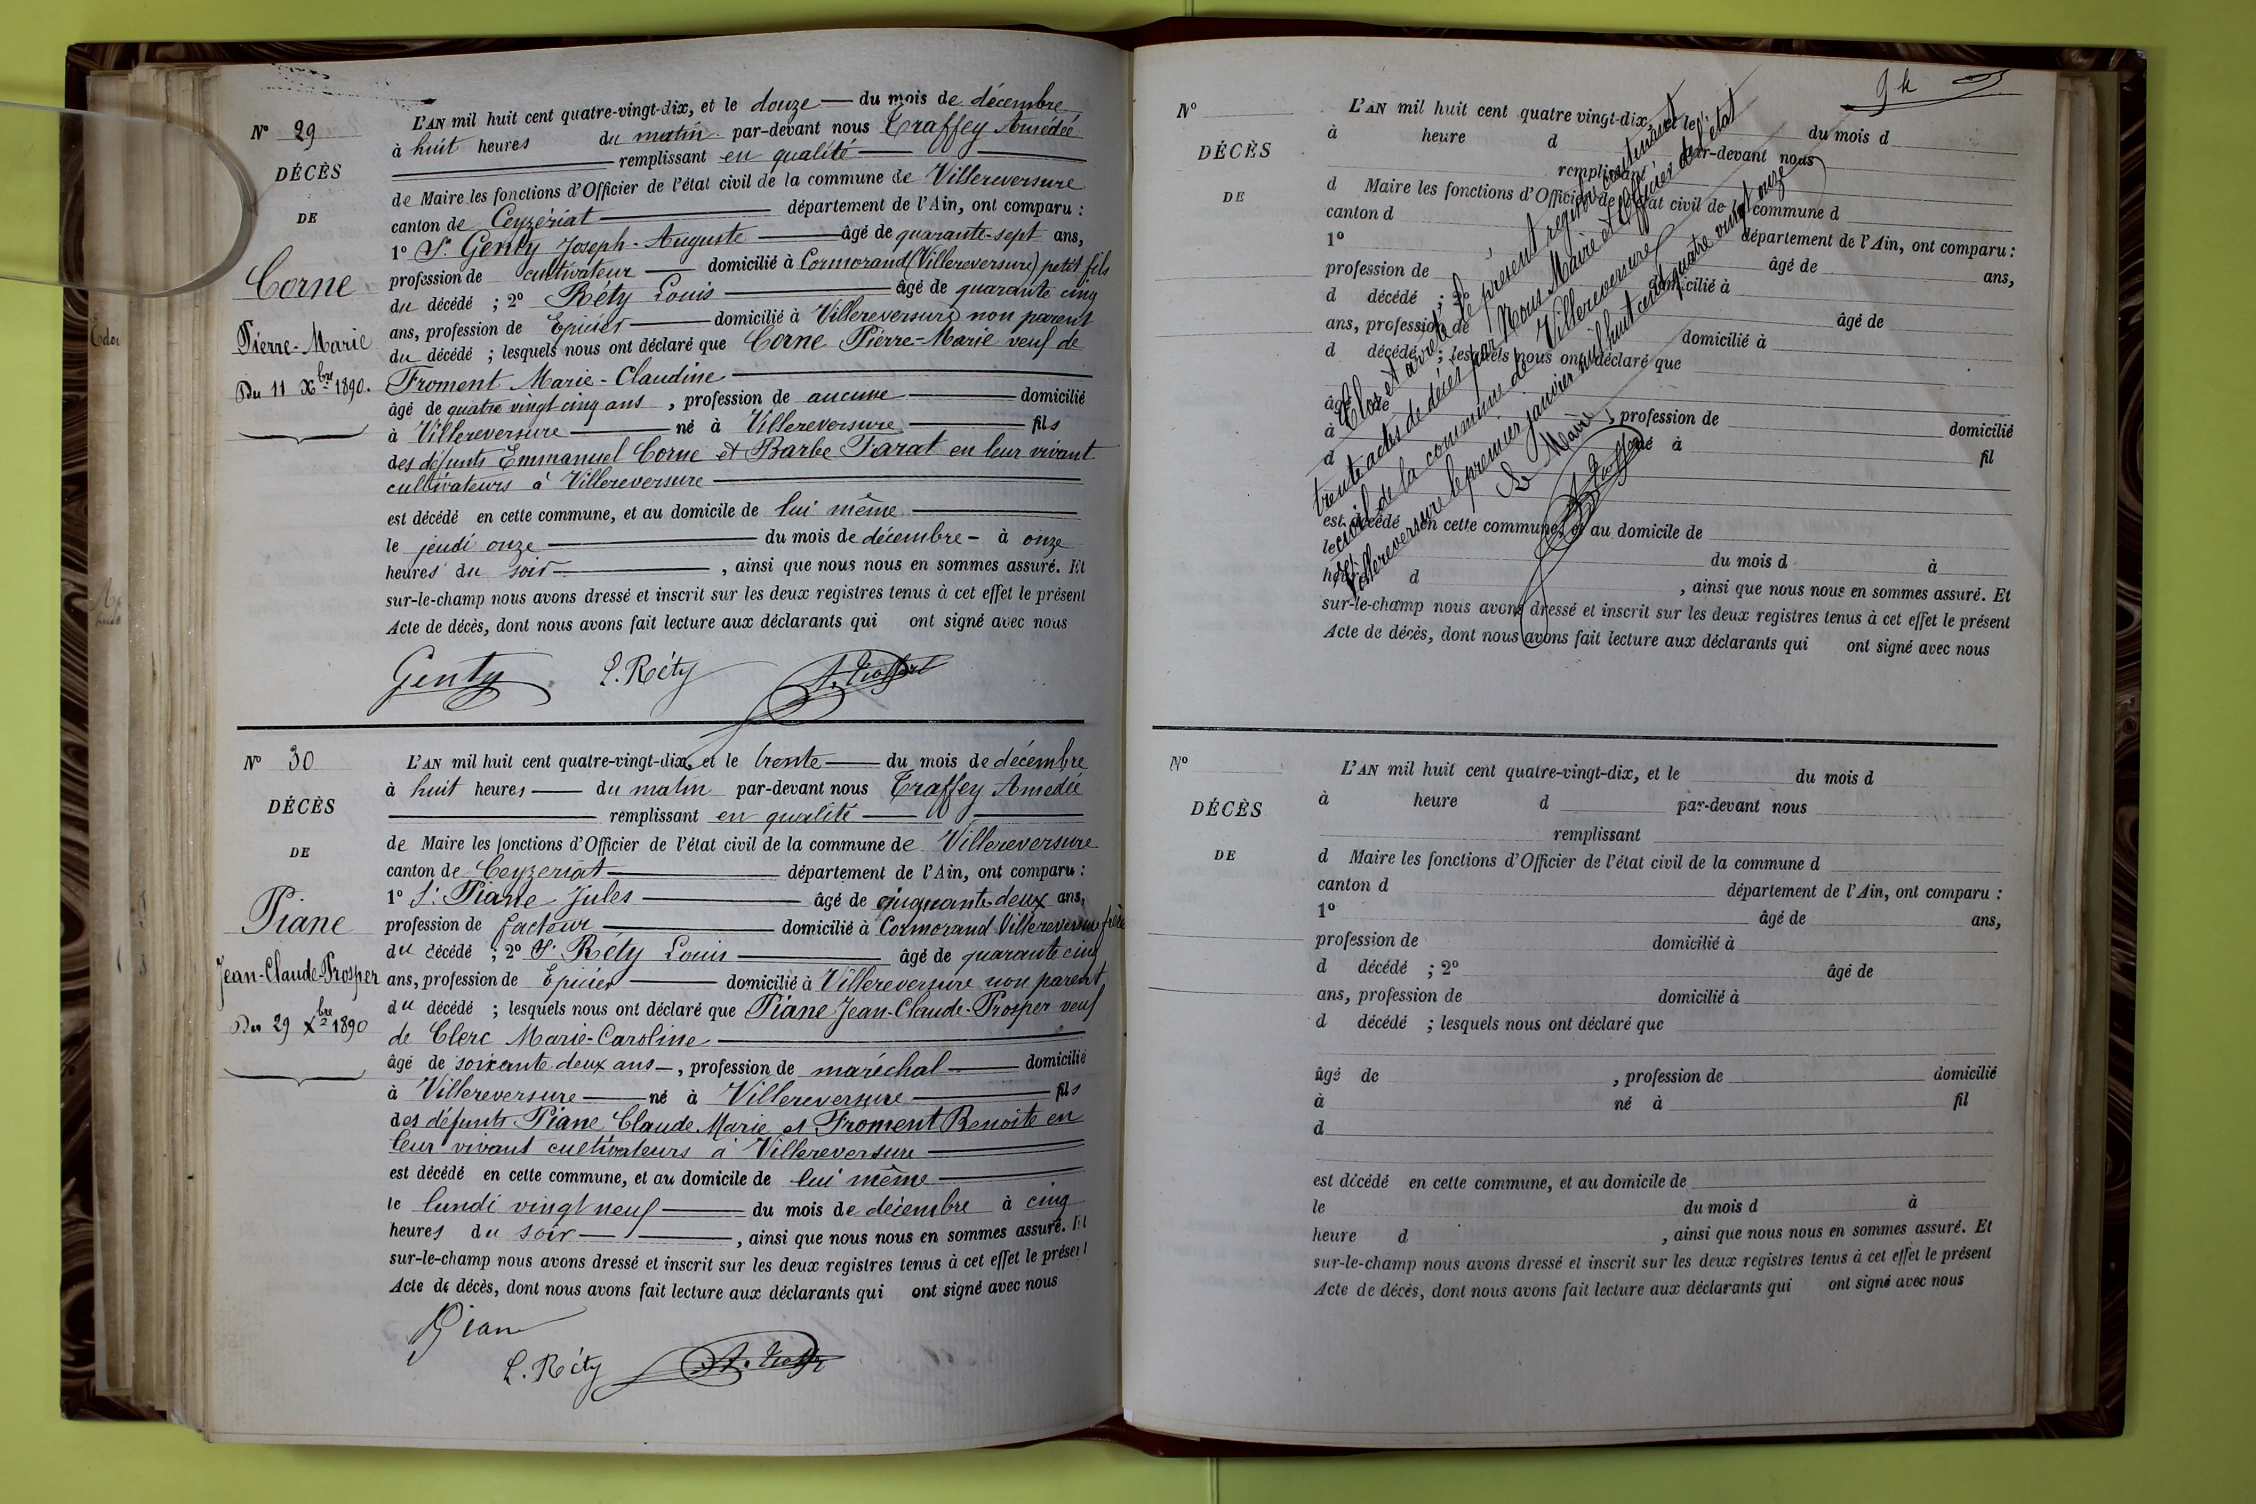 N° 29
DÉCÈS
DE
Corne
Pierre-Marie
Du 11 Xbre 1890.
L'AN mil huit cent quatre-vingt-dix, et le douze du mois de décembre
à huit heures du matin par-devant nous Traffey Amédée
remplissant en qualité
de Maire les fonctions d'Officier de l'état civil de la commune de Villereversure
canton de Ceyzériat département de l'Ain, ont comparu :
1° Sr Genty Joseph-Auguste âgé de quarante-sept ans,
profession de cultivateur domicilié à Cormorand (Villereversure) petit fils
du décédé ; 2° Réty Louis âgé de quarante cinq
ans, profession de Epicier domicilié à Villereversure non parent
du décédé ; lesquels nous ont déclaré que Corne Pierre-Marie veuf de
Froment Marie-Claudine
âgé de quatre vingt cinq ans, profession de aucune domicilié
à Villereversure né à Villereversure fils
des défunts Emmanuel Corne et Barbe Farat en leur vivant
cultivateurs à Villereversure
est décédé en cette commune, et au domicile de lui même
le jeudi onze du mois de décembre à onze
heures du soir, ainsi que nous nous en sommes assuré. Et
sur-le-champ nous avons dressé et inscrit sur les deux registres tenus à cet effet le présent
Acte de décès, dont nous avons fait lecture aux déclarants qui ont signé avec nous
Genty L. Réty
N° 30
DÉCÈS
DE
Piane
Jean-Claude-Prosper
Du 29 Xbre 1890
L'AN mil huit cent quatre-vingt-dix, et le trente du mois de décembre
à huit heures du matin par-devant nous Traffey Amédée
remplissant en qualité
de Maire les fonctions d'Officier de l'état civil de la commune de Villereversure
canton de Ceyzeriat département de l'Ain, ont comparu :
1° Sr Piane Jules âgé de cinquante-deux ans,
profession de facteur domicilié à Cormorand Villereversure frère
du décédé ; 2° Sr Réty Louis âgé de quarante cinq
ans, profession de Epicier domicilié à Villereversure non parent
du décédé ; lesquels nous ont déclaré que Piane Jean-Claude-Prosper veuf
de Clerc Marie-Caroline
âgé de soixante deux ans, profession de maréchal domicilié
à Villereversure né à Villereversure fils
des défunts Piane Claude Marie et Froment Benoite en
leur vivant cultivateurs à Villereversure
est décédé en cette commune, et au domicile de lui même
le lundi vingt neuf du mois de décembre à cinq
heures du soir, ainsi que nous nous en sommes assuré. Et
sur-le-champ nous avons dressé et inscrit sur les deux registres tenus à cet effet le présent
Acte de décès, dont nous avons fait lecture aux déclarants qui ont signé avec nous
L. Réty
N°
DÉCÈS
DE
L'AN mil huit cent quatre vingt-dix, et le du mois d
à heure d par-devant nous
remplissant
d Maire les fonctions d'Officier de l'état civil de la commune d
canton d département de l'Ain, ont comparu :
1° âgé de ans,
profession de domicilié à
d décédé ; 2° âgé de
ans, profession de domicilié à
d décédé ; lesquels nous ont déclaré que
âgé de , profession de domicilié
à né à fil
d
est décédé en cette commune, et au domicile de
le du mois d à
heure d , ainsi que nous nous en sommes assuré. Et
sur-le-champ nous avons dressé et inscrit sur les deux registres tenus à cet effet le présent
Acte de décès, dont nous avons fait lecture aux déclarants qui ont signé avec nous
Clos et arrêté le présent registre contenant
trente actes de décès par Nous Maire et Officier de l'état
civil de la commune de Villereversure
Villereversure le premier janvier mil huit cent quatre vingt onze
Le Maire
N°
DÉCÈS
DE
L'AN mil huit cent quatre-vingt-dix, et le du mois d
à heure d par-devant nous
remplissant
d Maire les fonctions d'Officier de l'état civil de la commune d
canton d département de l'Ain, ont comparu :
1° âgé de ans,
profession de domicilié à
d décédé ; 2° âgé de
ans, profession de domicilié à
d décédé ; lesquels nous ont déclaré que
âgé de , profession de domicilié
à né à fil
d
est décédé en cette commune, et au domicile de
le du mois d à
heure d , ainsi que nous nous en sommes assuré. Et
sur-le-champ nous avons dressé et inscrit sur les deux registres tenus à cet effet le présent
Acte de décès, dont nous avons fait lecture aux déclarants qui ont signé avec nous